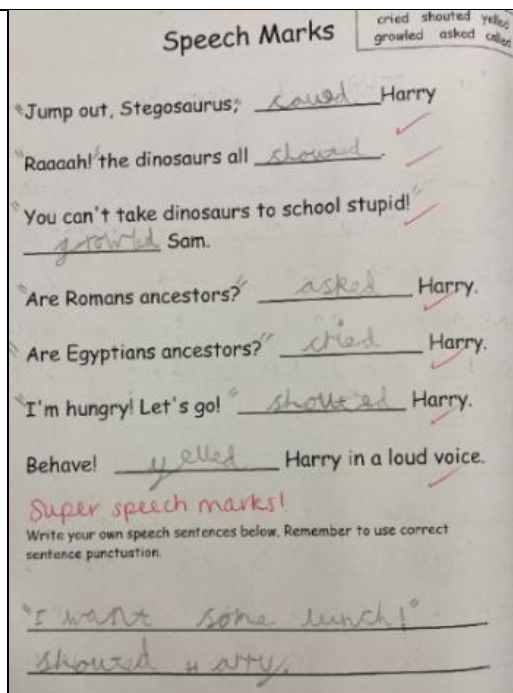 Speech Marks
cried shouted yelled
growled asked called
"Jump out, Stegosaurus," Harry
"Raaaah!" the dinosaurs all shouted.
"You can't take dinosaurs to school stupid!"
growled Sam.
"Are Romans ancestors?" asked Harry.
"Are Egyptians ancestors?" cried Harry.
"I'm hungry! Let's go!" shouted Harry.
Behave! yelled Harry in a loud voice.
Super speech marks!
Write your own speech sentences below. Remember to use correct
sentence punctuation.
"I want some lunch!"
shouted Harry.